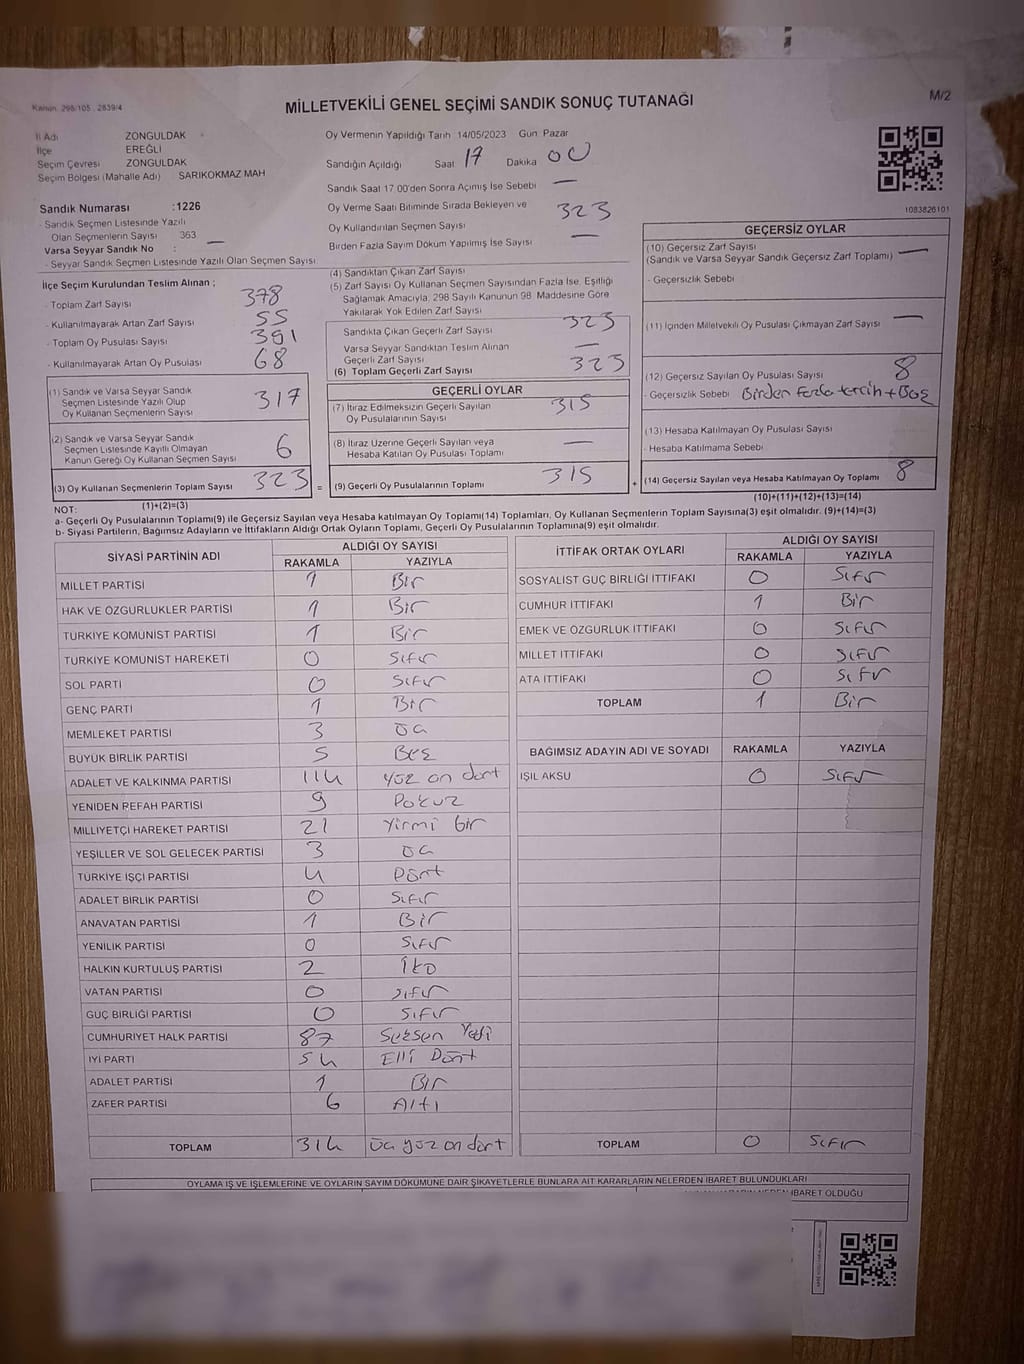 Kanun 298/105 2839/4
MİLLETVEKİLİ GENEL SEÇİMİ SANDIK SONUÇ TUTANAĞI
M/2
İl Adı ZONGULDAK
İlçe EREĞLİ
Seçim Çevresi ZONGULDAK
Seçim Bölgesi (Mahalle Adı) SARIKOKMAZ MAH
Sandık Numarası :1226
- Sandık Seçmen Listesinde Yazılı
Olan Seçmenlerin Sayısı 363
Varsa Seyyar Sandık No : —
- Seyyar Sandık Seçmen Listesinde Yazılı Olan Seçmen Sayısı
Oy Vermenin Yapıldığı Tarih 14/05/2023 Gün Pazar
Sandığın Açıldığı Saat 17 Dakika 00
Sandık Saat 17 00'den Sonra Açımış İse Sebebi —
Oy Verme Saati Bitiminde Sırada Bekleyen ve
Oy Kullandırılan Seçmen Sayısı 323
Birden Fazla Sayım Döküm Yapılmış İse Sayısı —
1083826101
İlçe Seçim Kurulundan Teslim Alınan ;
- Toplam Zarf Sayısı 378
- Kullanılmayarak Artan Zarf Sayısı 55
- Toplam Oy Pusulası Sayısı 391
- Kullanılmayarak Artan Oy Pusulası 68
(1) Sandık ve Varsa Seyyar Sandık
Seçmen Listesinde Yazılı Olup
Oy Kullanan Seçmenlerin Sayısı 317
(2) Sandık ve Varsa Seyyar Sandık
Seçmen Listesinde Kayıtlı Olmayan
Kanun Gereği Oy Kullanan Seçmen Sayısı 6
(3) Oy Kullanan Seçmenlerin Toplam Sayısı 323 =
(1)+(2)=(3)
(4) Sandıktan Çıkan Zarf Sayısı
(5) Zarf Sayısı Oy Kullanan Seçmen Sayısından Fazla İse, Eşitliği
Sağlamak Amacıyla, 298 Sayılı Kanunun 98 Maddesine Göre
Yakılarak Yok Edilen Zarf Sayısı
Sandıkta Çıkan Geçerli Zarf Sayısı 323
Varsa Seyyar Sandıktan Teslim Alınan
Geçerli Zarf Sayısı —
(6) Toplam Geçerli Zarf Sayısı 323
GEÇERLİ OYLAR
(7) İtiraz Edilmeksizin Geçerli Sayılan
Oy Pusulalarının Sayısı 315
(8) İtiraz Üzerine Geçerli Sayılan veya
Hesaba Katılan Oy Pusulası Toplamı —
(9) Geçerli Oy Pusulalarının Toplamı 315 +
GEÇERSİZ OYLAR
(10) Geçersiz Zarf Sayısı —
(Sandık ve Varsa Seyyar Sandık Geçersiz Zarf Toplamı)
- Geçersizlik Sebebi
(11) İçinden Milletvekili Oy Pusulası Çıkmayan Zarf Sayısı —
(12) Geçersiz Sayılan Oy Pusulası Sayısı 8
- Geçersizlik Sebebi Birden fazla tercih + Boş
(13) Hesaba Katılmayan Oy Pusulası Sayısı
- Hesaba Katılmama Sebebi
(14) Geçersiz Sayılan veya Hesaba Katılmayan Oy Toplamı 8
(10)+(11)+(12)+(13)=(14)
NOT:
a- Geçerli Oy Pusulalarının Toplamı(9) ile Geçersiz Sayılan veya Hesaba katılmayan Oy Toplamı(14) Toplamları, Oy Kullanan Seçmenlerin Toplam Sayısına(3) eşit olmalıdır. (9)+(14)=(3)
b- Siyasi Partilerin, Bağımsız Adayların ve İttifakların Aldığı Ortak Oyların Toplamı, Geçerli Oy Pusulalarının Toplamına(9) eşit olmalıdır.
SİYASİ PARTİNİN ADI ALDIĞI OY SAYISI
RAKAMLA YAZIYLA
MİLLET PARTİSİ 1 Bir
HAK VE ÖZGÜRLÜKLER PARTİSİ 1 Bir
TÜRKİYE KOMÜNİST PARTİSİ 1 Bir
TÜRKİYE KOMÜNİST HAREKETİ 0 Sıfır
SOL PARTİ 0 Sıfır
GENÇ PARTİ 1 Bir
MEMLEKET PARTİSİ 3 üç
BÜYÜK BİRLİK PARTİSİ 5 Beş
ADALET VE KALKINMA PARTİSİ 114 yüz on dört
YENİDEN REFAH PARTİSİ 9 Dokuz
MİLLİYETÇİ HAREKET PARTİSİ 21 Yirmi bir
YEŞİLLER VE SOL GELECEK PARTİSİ 3 üç
TÜRKİYE İŞÇİ PARTİSİ 4 Dört
ADALET BİRLİK PARTİSİ 0 Sıfır
ANAVATAN PARTİSİ 1 Bir
YENİLİK PARTİSİ 0 Sıfır
HALKIN KURTULUŞ PARTİSİ 2 İki
VATAN PARTİSİ 0 Sıfır
GÜÇ BİRLİĞİ PARTİSİ 0 Sıfır
CUMHURİYET HALK PARTİSİ 87 Seksen Yedi
İYİ PARTİ 54 Elli Dört
ADALET PARTİSİ 1 Bir
ZAFER PARTİSİ 6 Altı
TOPLAM 314 üç yüz on dört
İTTİFAK ORTAK OYLARI ALDIĞI OY SAYISI
RAKAMLA YAZIYLA
SOSYALİST GÜÇ BİRLİĞİ İTTİFAKI 0 Sıfır
CUMHUR İTTİFAKI 1 Bir
EMEK VE ÖZGÜRLÜK İTTİFAKI 0 Sıfır
MİLLET İTTİFAKI 0 Sıfır
ATA İTTİFAKI 0 Sıfır
TOPLAM 1 Bir
BAĞIMSIZ ADAYIN ADI VE SOYADI RAKAMLA YAZIYLA
IŞIL AKSU 0 Sıfır
TOPLAM 0 Sıfır
OYLAMA İŞ VE İŞLEMLERİNE VE OYLARIN SAYIM DÖKÜMÜNE DAİR ŞİKAYETLERLE BUNLARA AİT KARARLARIN NELERDEN İBARET BULUNDUKLARI
İBARET OLDUĞU